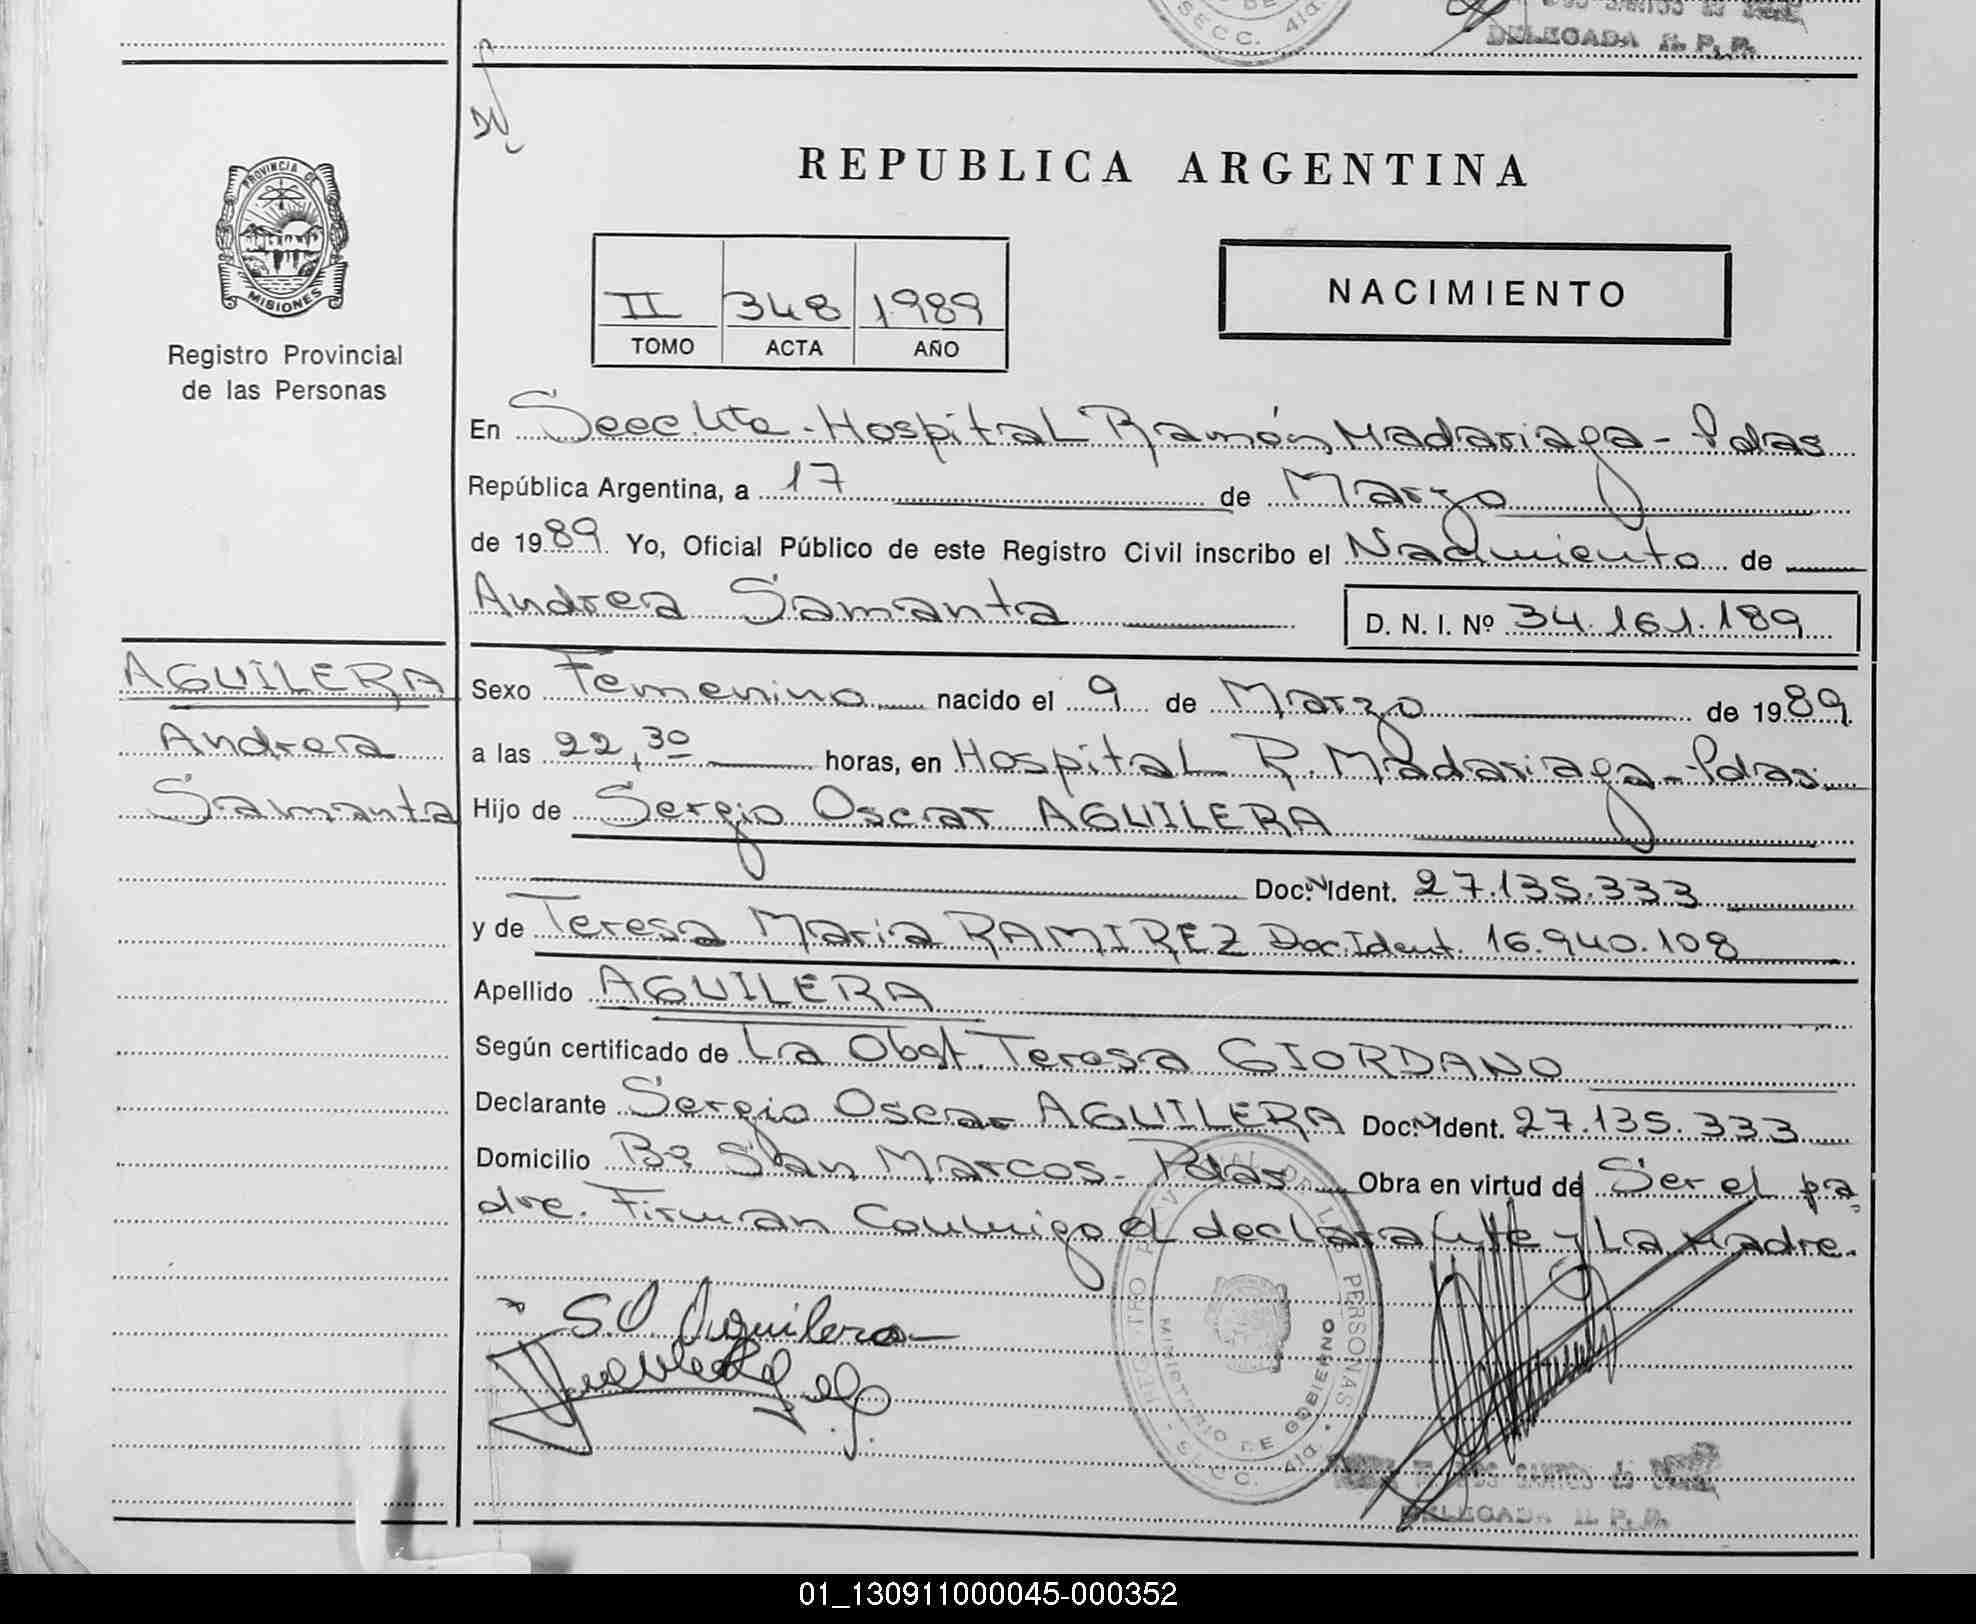 SECC. 4ta.
DELEGADA R. P. P.
PROVINCIA DE
MISIONES
Registro Provincial
de las Personas
REPUBLICA ARGENTINA
II 348 1989
TOMO ACTA AÑO
NACIMIENTO
En Secc. 4ta - Hospital Ramón Madariaga - Pdas
República Argentina, a 17 de Marzo
de 1989 Yo, Oficial Público de este Registro Civil inscribo el Nacimiento de
Andrea Samanta D. N. I. Nº 34.161.189
AGUILERA
Andrea
Samanta
Sexo Femenino nacido el 9 de Marzo de 1989
a las 22,30 horas, en Hospital R. Madariaga - Pdas.
Hijo de Sergio Oscar AGUILERA
Doc. Ident. 27.135.333
y de Teresa Maria RAMIREZ Doc. Ident. 16.940.108
Apellido AGUILERA
Según certificado de La Obst. Teresa GIORDANO
Declarante Sergio Oscar AGUILERA Doc. Ident. 27.135.333
Domicilio Bº San Marcos - Pdas Obra en virtud de Ser el pa
dre. Firman Conmigo el declarante y La Madre.
S.O. Aguilera
REGISTRO PROVINCIAL DE LAS PERSONAS
MINISTERIO DE GOBIERNO
SECC. 4ta.
DOS SANTOS de
DELEGADA R. P. P.
01_130911000045-000352